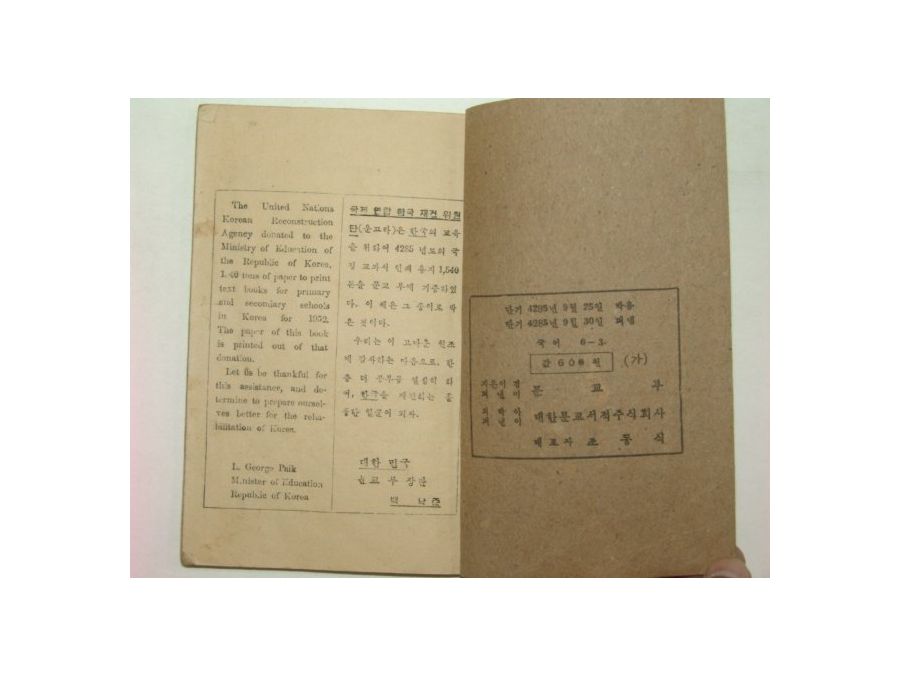 The United Nations
Korean Reconstruction
Agency donated to the
Ministry of Education of
the Republic of Korea,
tons of paper to print
text books for primary
and secondary schools
in Korea for 1952.
The paper of this book
is printed out of that
donation.
Let us be thankful for
this assistance, and de-
termine to prepare oursel-
ves better for the reha-
bilitation of Korea.
L. George Paik
Minister of Education
Republic of Korea
국제 연합 한국 재건 위원
단(운끄라)은 한국의 교육
을 위하여 4285 년도의 국
정 교과서 인쇄 용지 1,540
톤을 문교 부에 기증하였
다. 이 책은 그 종이로 박
은 것이다.
우리는 이 고마운 원조
에 감사하는 마음으로, 한
층 더 공부를 열심히 하
여, 한국을 재건하는 훌
륭한 일꾼이 되자.
대한 민국
문교 부 장관
백 낙 준
단기 4285년 9월 25일 박음
단기 4285년 9월 30일 펴냄
국어 6-3
값 600 원 (가)
지은이 겸
펴낸이 문 교 부
박아
펴낸이 대한문교서적주식회사
대표자 조 동 식